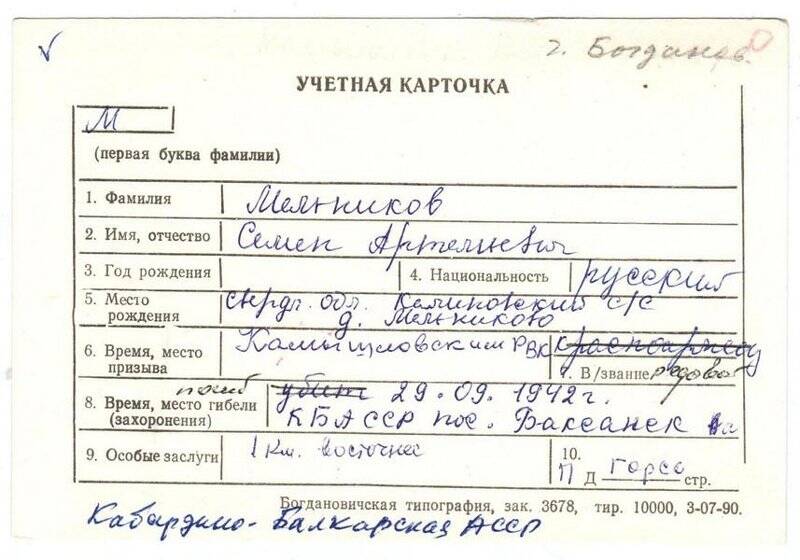 г. Богданов.
УЧЕТНАЯ КАРТОЧКА
М
(первая буква фамилии)
1. Фамилия Мельников
2. Имя, отчество Семен Артемьевич
3. Год рождения 4. Национальность русский
5. Место рождения свердл. обл. Калиновский с/с
д. Мельникова
6. Время, место призыва Камышловским РВК красноармеец
7. В/звание рядовой
погиб
8. Время, место гибели (захоронения) убит 29.09.1942г.
КБАССР пос. Баксанек
9. Особые заслуги 1 км. восточнее 10.
П Д стр.
Богдановичская типография, зак. 3678, тир. 10000, 3-07-90.
Кабардино-Балкарская АССР